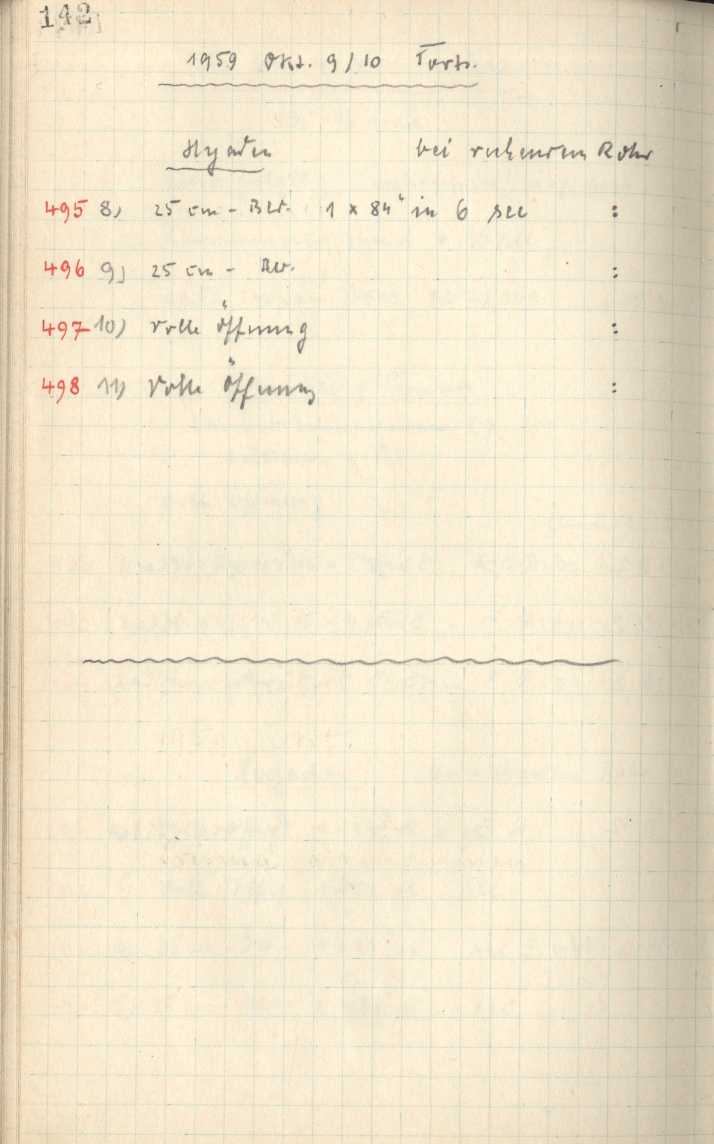 142
1959 Okt. 9/10 Forts.
Hyaden bei ruhendem Rohr
495 8) 25 cm - Bld. 1 x 84" in 6 sec :
496 9) 25 cm - Bld. :
497 10) Volle Öffnung :
498 11) Volle Öffnung :